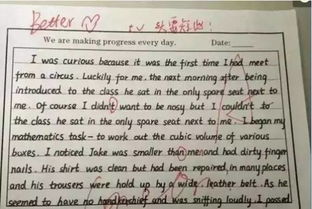 Better
We are making progress every day. Date:
I was curious because it was the first time I had meet
from a circus. Luckily for me, the next morning after being
introduced to the class he sat in the only spare seat next to
me. Of course I didn't want to be nosy but I couldn't to
the class he sat in the only spare seat next to me. I began my
mathematics task - to work out the cubic volume of various
buxes. I noticed Jake was smaller than me and had dirty finger
nails. His shirt was clean but had been repaired, in many places
and his trousers were hold up by a wide, leather belt. As he
seemed to have no handkerchief and was sniffing loudly. I passed